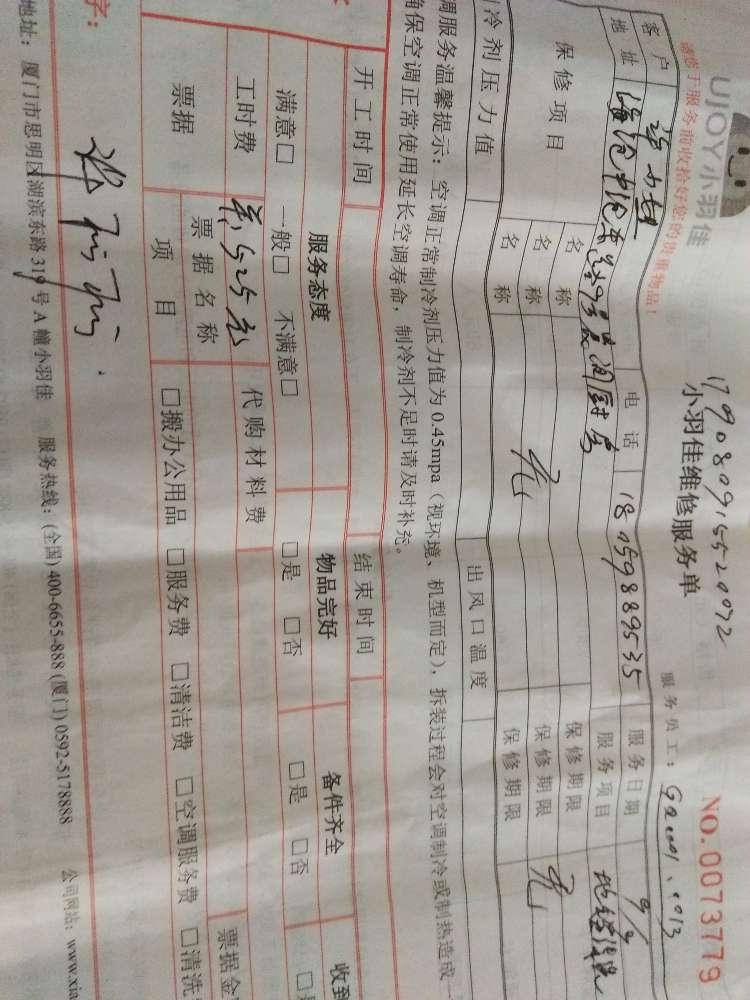 UJOY小羽佳
请您于服务前收拾好您的贵重物品！
17908091552072
小羽佳维修服务单
服务员工：
NO.0073779
客户 电话 18059889535 服务日期 9/9
地址 服务项目
保修项目 名称 保修期限
名称 无 保修期限 无
名称 保修期限
冷剂压力值 出风口温度
调服务温馨提示：空调正常制冷剂压力值为0.45mpa（视环境、机型而定），拆装过程会对空调制冷或制热造成一
确保空调正常使用延长空调寿命，制冷剂不足时请及时补充。
开工时间 结束时间
服务态度 物品完好 备件齐全 收到
满意□ 一般□ 不满意□ □是 □否 □是 □否
工时费 共525元 代购材料费
票据 票据名称 票据金
项目 □搬办公用品 □服务费 □清洁费 □空调服务费 □清洗
字：
地址：厦门市思明区湖滨东路319号A幢小羽佳 服务热线：(全国) 400-6655-888 (厦门) 0592-5178888 公司网站：www.xia